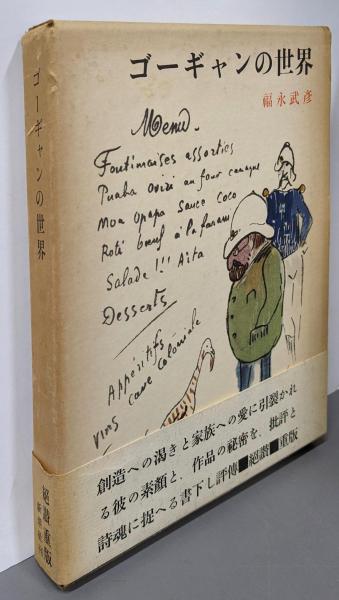 ゴーギャンの世界
福永武彦
ゴーギャンの世界
Menu.
Foutimaises assorties
Puaha Oviri au four canaque
Moa Opapa Sauce Coco
Roti bœuf à la
Salade !!! Aita
Desserts
Appéritifs
vins cave Coloniale
創造への渇きと家族への愛に引裂かれ
る彼の素顔と、作品の秘密を、批評と
詩魂に捉へる書下し評傳■絕讃■重版
絕讃重版